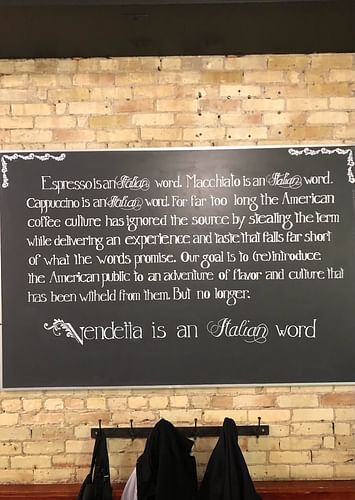 Espresso is an Italian word. Macchiato is an Italian word.
Cappuccino is an Italian word. For far too long the American
coffee culture has ignored the source by stealing the term
while delivering an experience and taste that falls far short
of what the words promise. Our goal is to (re)introduce
the American public to an adventure of flavor and culture that
has been witheld from them. But no longer.
Vendetta is an Italian word